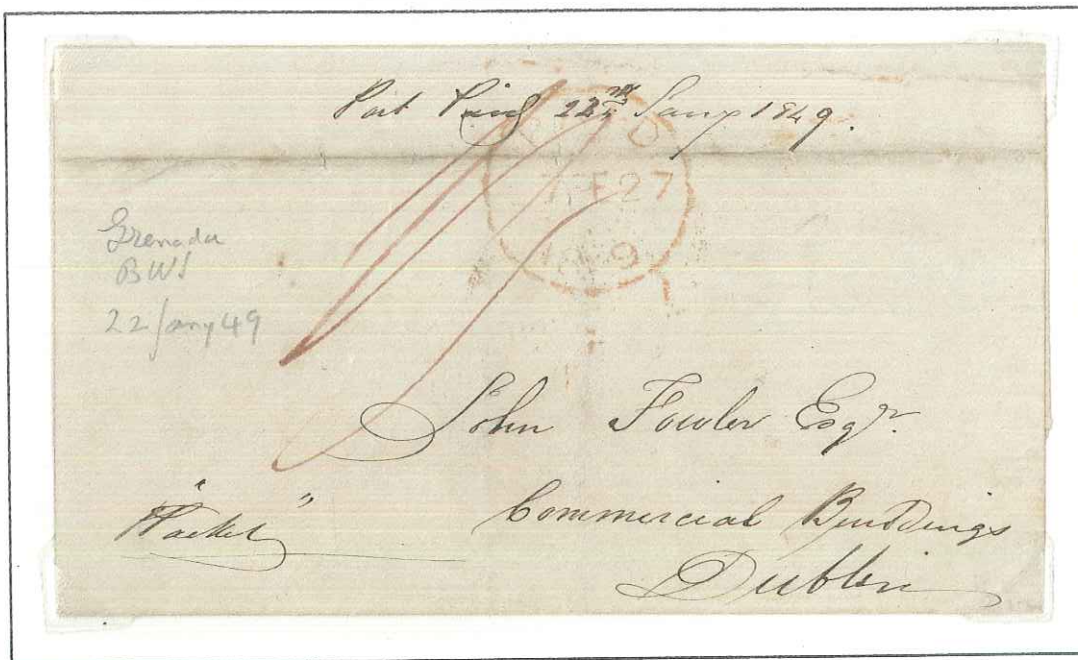 Post Paid 22nd Jany 1849.
PAID
FE27
1849
Grenada
BWI
22 Jany 49
John Fowler Esqr.
"Packet"
Commercial Buildings
Dublin